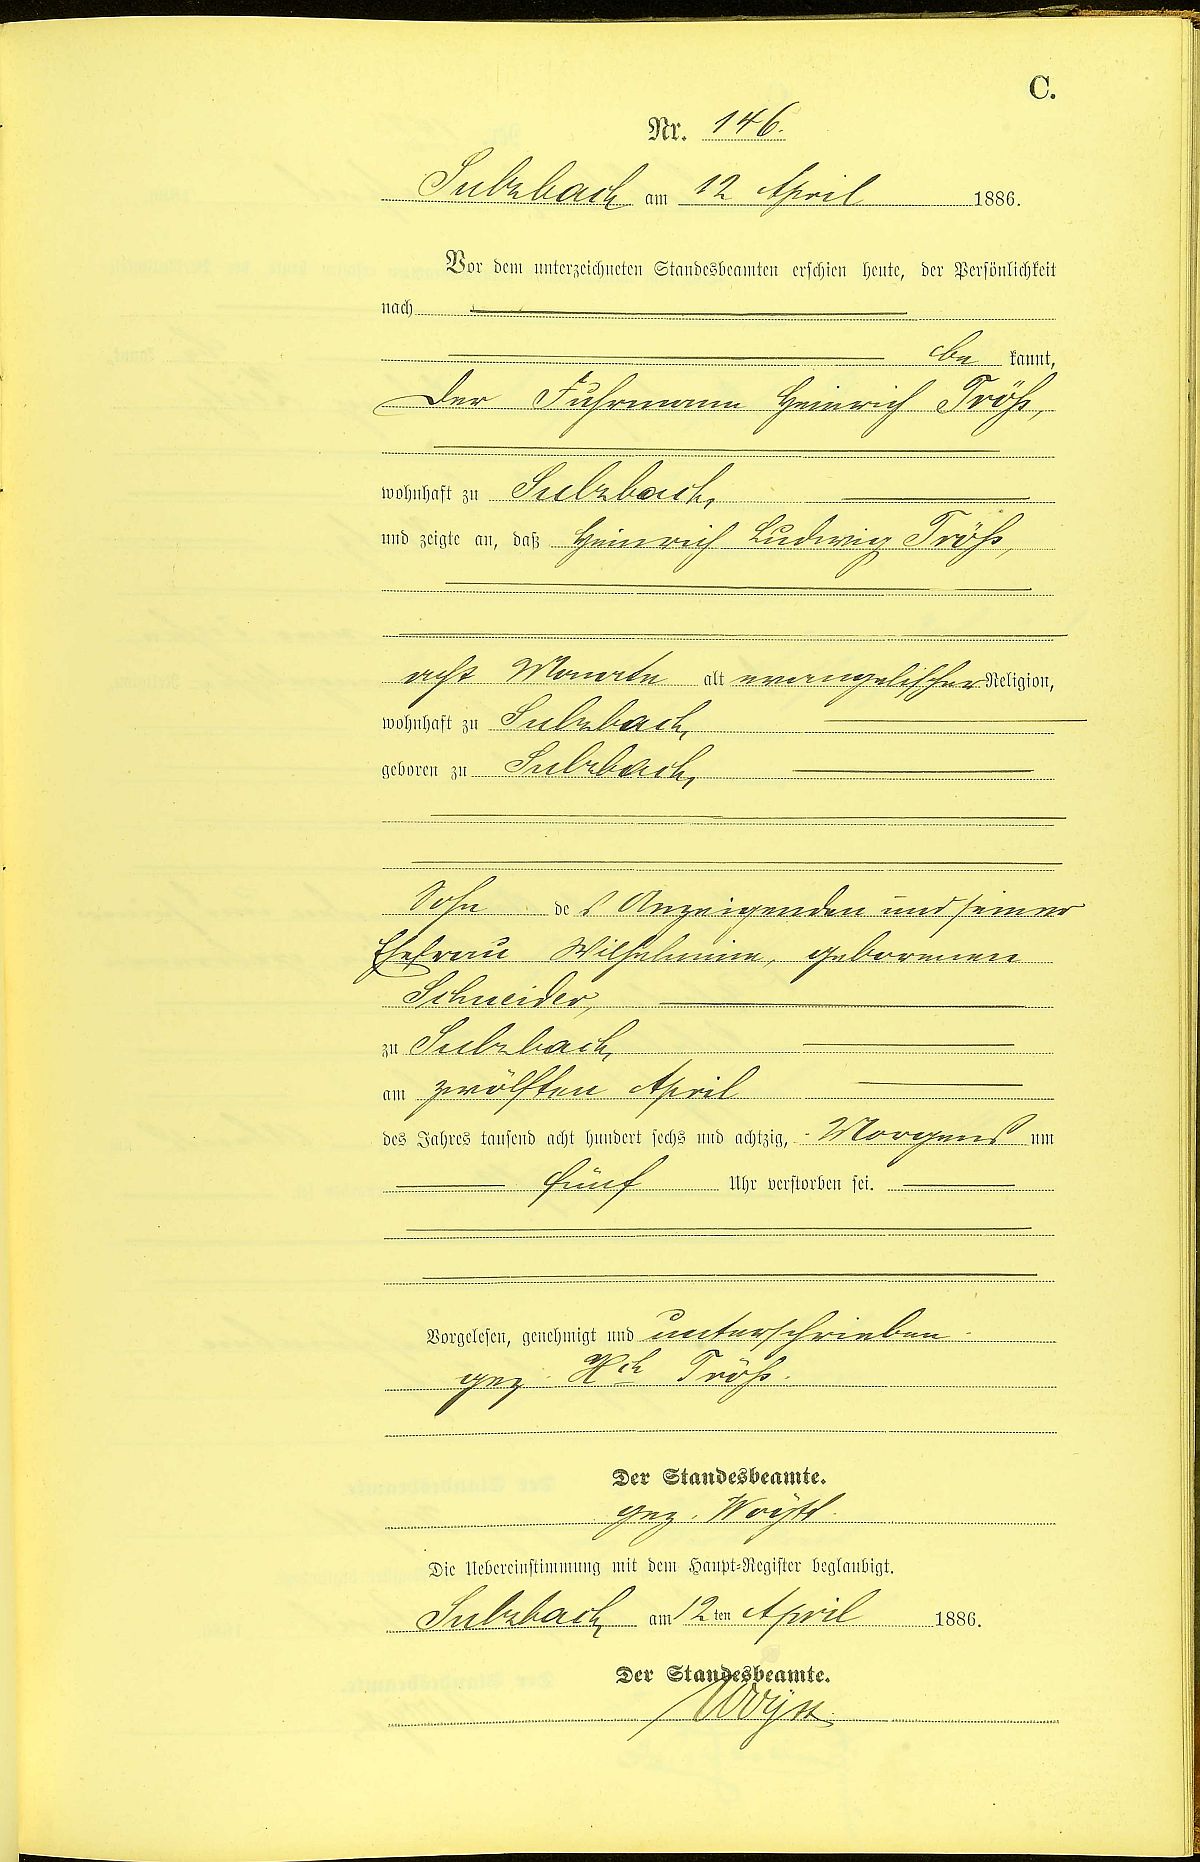 C.
Nr. 146.
Sulzbach am 12 April 1886.
Vor dem unterzeichneten Standesbeamten erschien heute, der Persönlichkeit
nach
be kannt,
der Fuhrmann Heinrich Tröß,
wohnhaft zu Sulzbach,
und zeigte an, daß Heinrich Ludwig Tröß,
acht Monate alt evangelischer Religion,
wohnhaft zu Sulzbach,
geboren zu Sulzbach,
Sohn des Anzeigenden und seiner
Ehefrau Wilhelmine, geborenen
Schneider,
zu Sulzbach,
am zwölften April
des Jahres tausend acht hundert sechs und achtzig, Morgens um
fünf Uhr verstorben sei.
Vorgelesen, genehmigt und unterschrieben.
gez. Hch Tröß.
Der Standesbeamte.
gez.
Die Uebereinstimmung mit dem Haupt-Register beglaubigt.
Sulzbach am 12ten April 1886.
Der Standesbeamte.